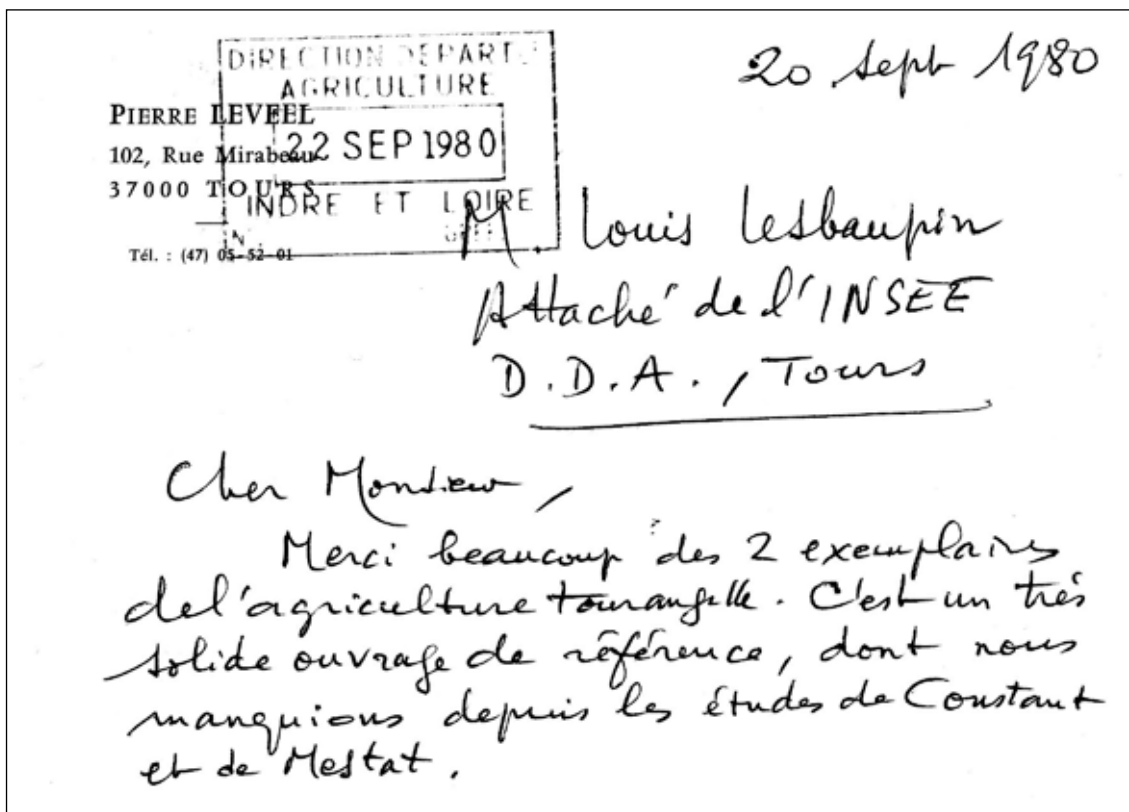 20 Sept 1980
DIRECTION DEPART.
AGRICULTURE
22 SEP 1980
INDRE ET LOIRE
PIERRE LEVEEL
102, Rue Mirabeau
37000 TOURS
Tél. : (47) 05-52-01
M. Louis Lesbaupin
Attaché de l'INSEE
D.D.A., Tours
Cher Monsieur,
Merci beaucoup des 2 exemplaires
de l'agriculture tourangelle. C'est un très
solide ouvrage de référence, dont nous
manquions depuis les études de Constant
et de Mestat.